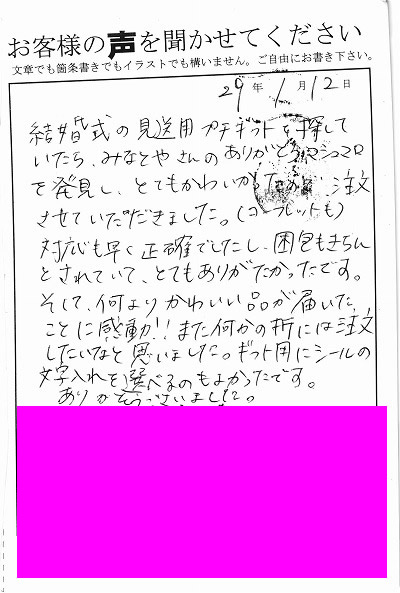 お客様の声を聞かせてください
文章でも箇条書きでもイラストでも構いません。ご自由にお書き下さい。
29年1月12日
結婚式の見送用プチギフトを探して
いたら、みなとやさんのありがとうマシュマロ
を発見し、とてもかわいかったので、注文
させていただきました。(ゴーフレットも)
対応も早く正確でしたし、困包もきちん
とされていて、とてもありがたかったです。
そして、何よりかわいい品が届いた
ことに感動!!また何かの折には注文
したいなと思いました。ギフト用にシールの
文字入れを選べるのもよかったです。
ありがとうございました。